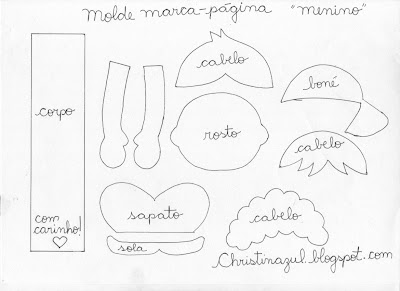 Molde marca-página "menino"
cabelo
boné
corpo
rosto
cabelo
com
carinho!
sapato
cabelo
sola
Christinazul.blogspot.com